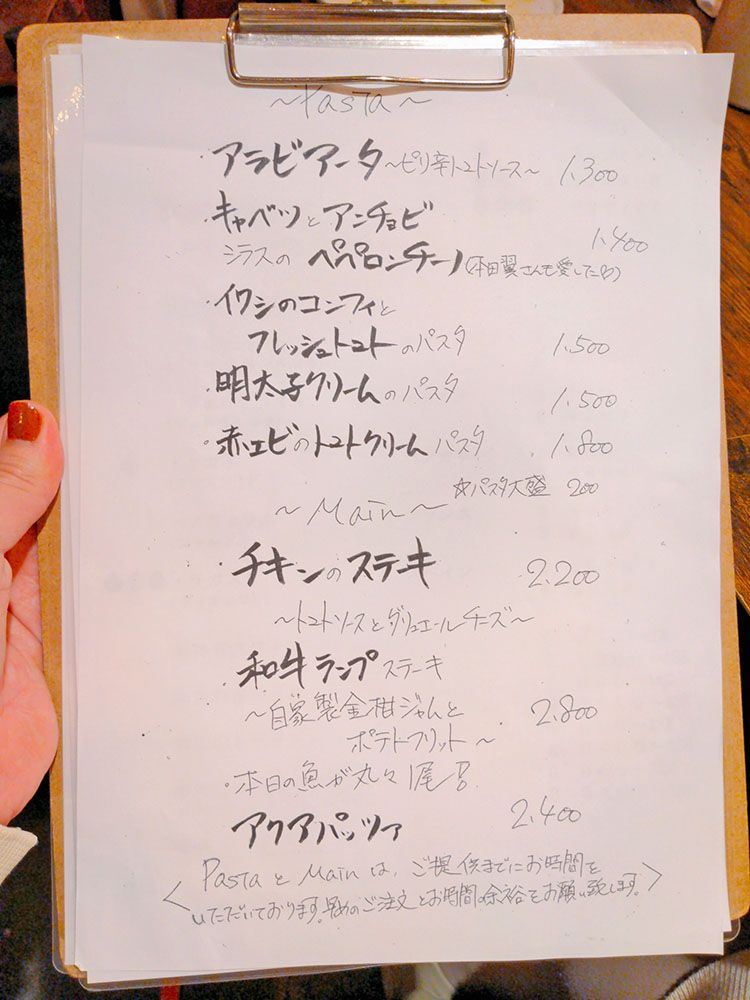 ～Pasta～
・アラビアータ ～ピリ辛トマトソース～ 1.300
・キャベツとアンチョビ
シラスの ペペロンチーノ(本田翼さんも愛した♡) 1.400
・イワシのコンフィと
フレッシュトマトのパスタ 1.500
・明太子クリームのパスタ 1.500
・赤エビのトマトクリームパスタ 1.800
☆パスタ大盛 200
～Main～
・チキンのステーキ 2.200
～トマトソースとグリュエールチーズ～
・和牛ランプステーキ
～自家製金柑ジャムと
ポテトフリット～ 2.800
・本日の魚が丸々1尾
アクアパッツァ 2.400
〈Pasta と Main は、ご提供までにお時間を
いただいております。早めのご注文とお時間の余裕をお願い致します。〉